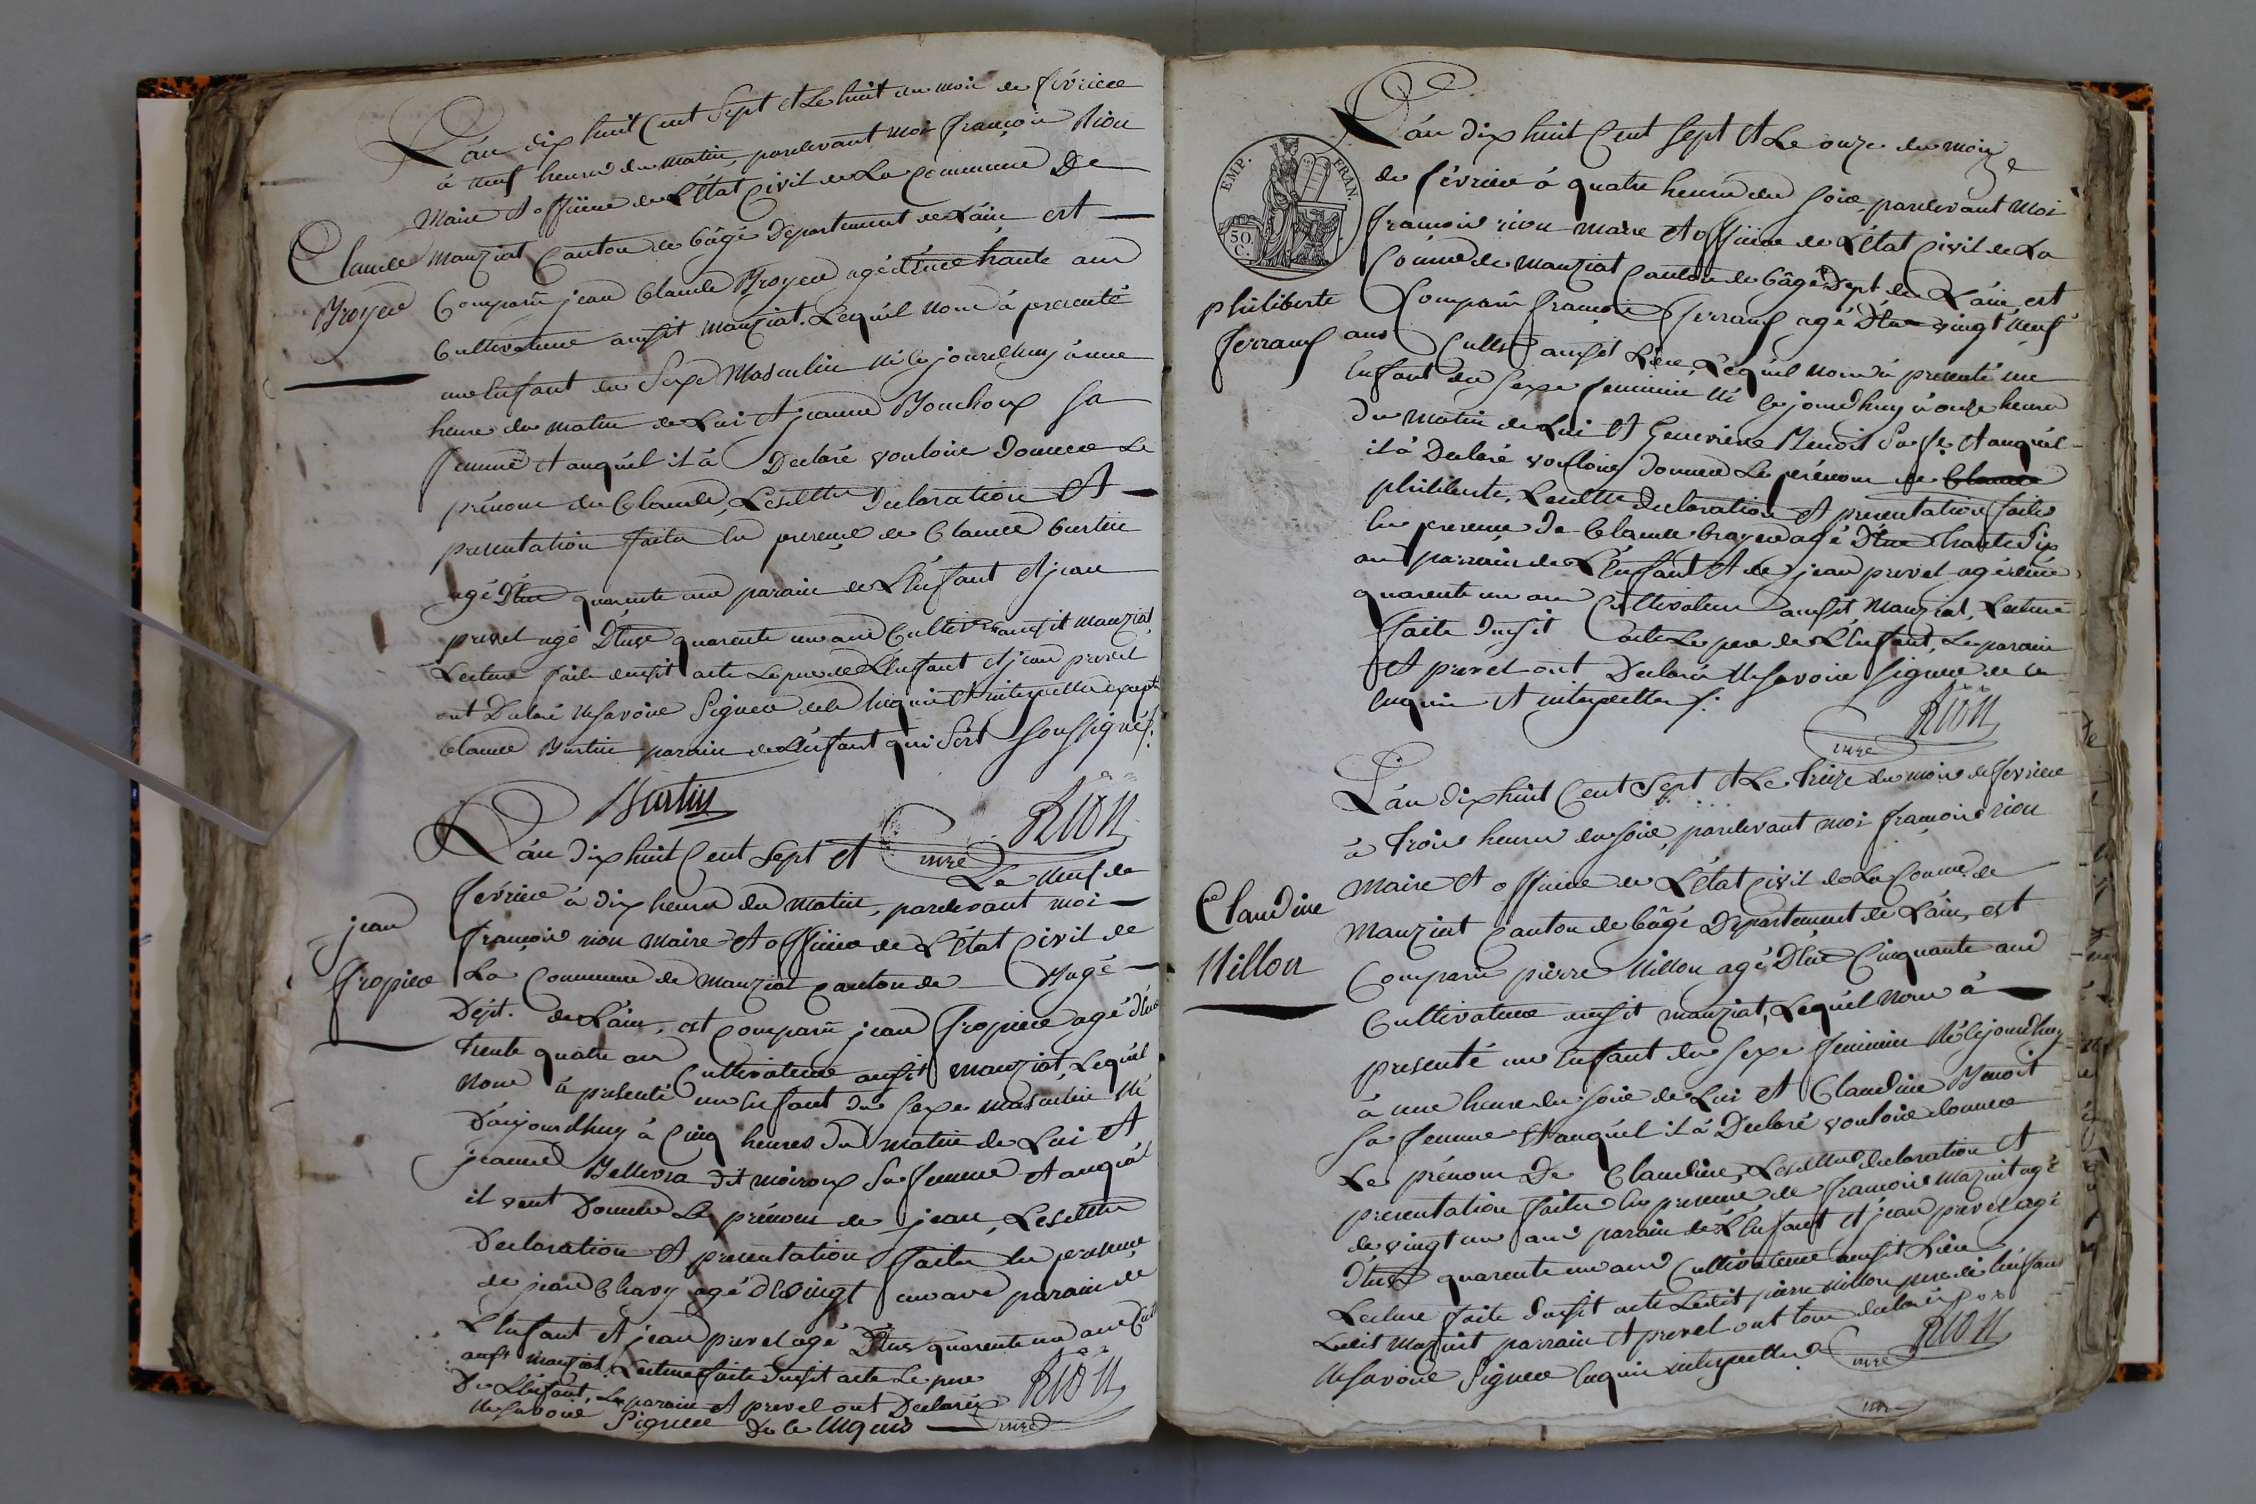 L'an dix huit Cent Sept et Le huit du mois de février
à neuf heures du matin, pardevant moi françois Rion
Maire et officier de L'état Civil de La Commune De
Manziat Canton de bâgé Département de L'ain est
Claude
Broyer
Comparu jean Claude Broyer agé d'une trante ans
Cultivateur audit Manziat. Lequél nous à presenté
un Enfant du Sexe Masculin né le jourdhuy à une
heure du matin de Lui et jeanne Bouchoux Sa
femme et auquél il à Declaré vouloir Donner Le
prénom de Claude, Lesdittes Declaration et
presentation faites En presence de Claude burtin
agé D'Eux quarente un parain de L'Enfant et jean
prevel agé D'Eux quarente un ans Cultivrs audit manziat,
Lecture faite dudit acte Le pere de L'Enfant et jean prevel
ont Declaré ne Savoir Signer de ce Enquis et interpellés excepté
Claude Burtin parain de L'Enfant qui s'est soussigné ./.
Burtin
RION
mre
L'an dix huit Cent Sept et
Le neuf de
février à dix heures du matin, pardevant moi
jean
françois rion maire et officier de L'état Civil de
fropier
La Commune de manziat canton de Bagé
Dépt. de L'ain, est Comparu jean fropier agé d'Eux
trente quatre ans Cultivateur audit manziat, Lequél
nous à presenté un Enfant du Sexe masculin né
D'aujourdhuy à Cinq heures du matin de Lui et
jeanne Bellevra dit moiroux Sa femme et auquél
il veut Donner Le prénom de jean, Lesdittes
Declaration et presentation faites En presence
de jean Chavy agé de vingt un ans parain de
L'Enfant et jean prevel agé D'Eux quarente un ans Cult
audt manziat, Lecture faite dudit acte Le pere
De L'Enfant, Le parain et prevel ont Declarés
ne Savoir Signer De ce Enquis
RION
mre
EMP. FRAN.
50.
C.
L'an dix huit Cent Sept et Le onze du mois
de février à quatre heures du soir, pardevant moi
françois rion maire et officier de L'état Civil de La
Comune de manziat Canton de bâgé Dept de L'ain, est
philiberte
ferrand
Comparu françois ferrand agé D'Eux vingt neuf
ans Cultr audit Lieu, Lequél nous à presenté un
Enfant du Sexe feminin né le jourdhuy à onze heures
du matin de Lui et Genevieve Benoit Sa fe. et auquél
il à Declaré vouloir donner Le prénom de Claude
philiberte, Lesdittes Declaration et presentation faites
En presence De Claude broyer agé D'Eux trante dix
ans parrain de L'Enfant et de jean prevel agé d'Eux
quarente un ans Cultivateurs audit Manziat, Lecture
faite dudit acte Le pere de L'Enfant, Le parain
et prevel ont Declaré ne Savoir Signer de ce
Enquis et interpellés ./.
RION
mre
L'an dix huit Cent Sept et Le treize du mois de fevrier
à trois heures du soir, pardevant moi françois rion
Maire et officier de L'état Civil de La Comune de
Claudine
Nillon
Manziat Canton de bâgé Département de L'ain, est
Comparu pierre Nillon agé D'Eux Cinquante ans
Cultivateur audit manziat, Lequél nous à
presenté un Enfant du Sexe feminin né le jourdhuy
à une heure du soir de Lui et Claudine Benoit
Sa femme et auquél il à Declaré vouloir donner
Le prénom De Claudine, Lesdittes declaration et
presentation faites En presence de françois Mazuit agé
de vingt un ans parain de L'Enfant et jean prevel agé
D'Eux quarente un ans Cultivateurs audit Lieu
Lecture faite dudit acte Ledit pierre nillon pere de L'Enfant
Ledit Mazuit parrain et prevel ont tous declarés
ne Savoir Signer Enquis interpellés
RION
mre
mre